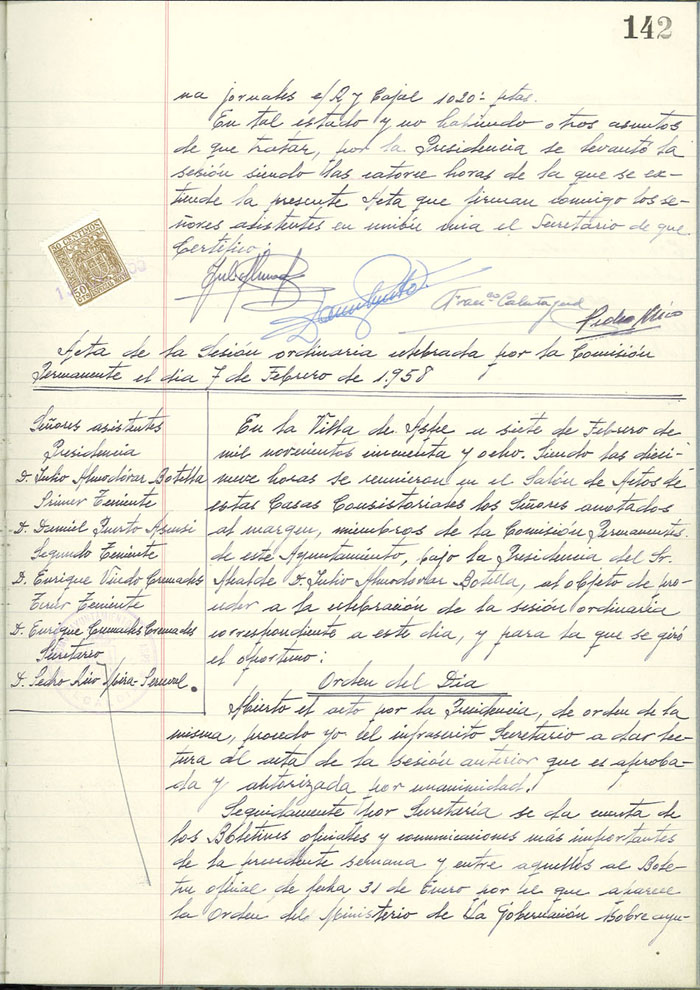 142
na jornales c/ R y Cajal 1020'- ptas.
En tal estado y no habiendo otros asuntos
de que tratar, por la Presidencia se levantó la
sesión siendo las catorce horas de la que se ex-
tiende la presente Acta que firman conmigo los se-
ñores asistentes en unión mia el Secretario de que
Certifico:
50 CENTIMOS
Acta de la Sesión ordinaria celebrada por la Comisión
Permanente el dia 7 de Febrero de 1.958
Señores asistentes
Presidencia
D. Julio Almodóvar Botella
Primer Teniente
D. Daniel Puerto Asensi
Segundo Teniente
D. Enrique Cremades
Tercer Teniente
D. Enrique Cremades Cremades
Secretario
D. Pedro Mira-Perceval.
En la Villa de Aspe a siete de Febrero de
mil novecientos cincuenta y ocho. Siendo las dieci-
nueve horas se reunieron en el Salón de Actos de
estas Casas Consistoriales los Señores anotados
al margen, miembros de la Comisión Permanente
de este Ayuntamiento, bajo la Presidencia del Sr.
Alcalde D. Julio Almodóvar Botella, al objeto de pro-
ceder a la celebración de la sesión ordinaria
correspondiente a este dia, y para la que se giró
el oportuno:
Orden del Dia
Abierto el acto por la Presidencia, de orden de la
misma, procedo yo el infrascrito Secretario a dar lec-
tura del acta de la sesión anterior que es aproba-
da y autorizada por unanimidad.
Seguidamente por Secretaría se da cuenta de
los Boletines oficiales y comunicaciones más importantes
de la precedente semana y entre aquellos al Bole-
tin oficial de fecha 31 de Enero por el que aparece
la Orden del Ministerio de la Gobernación sobre ayu-